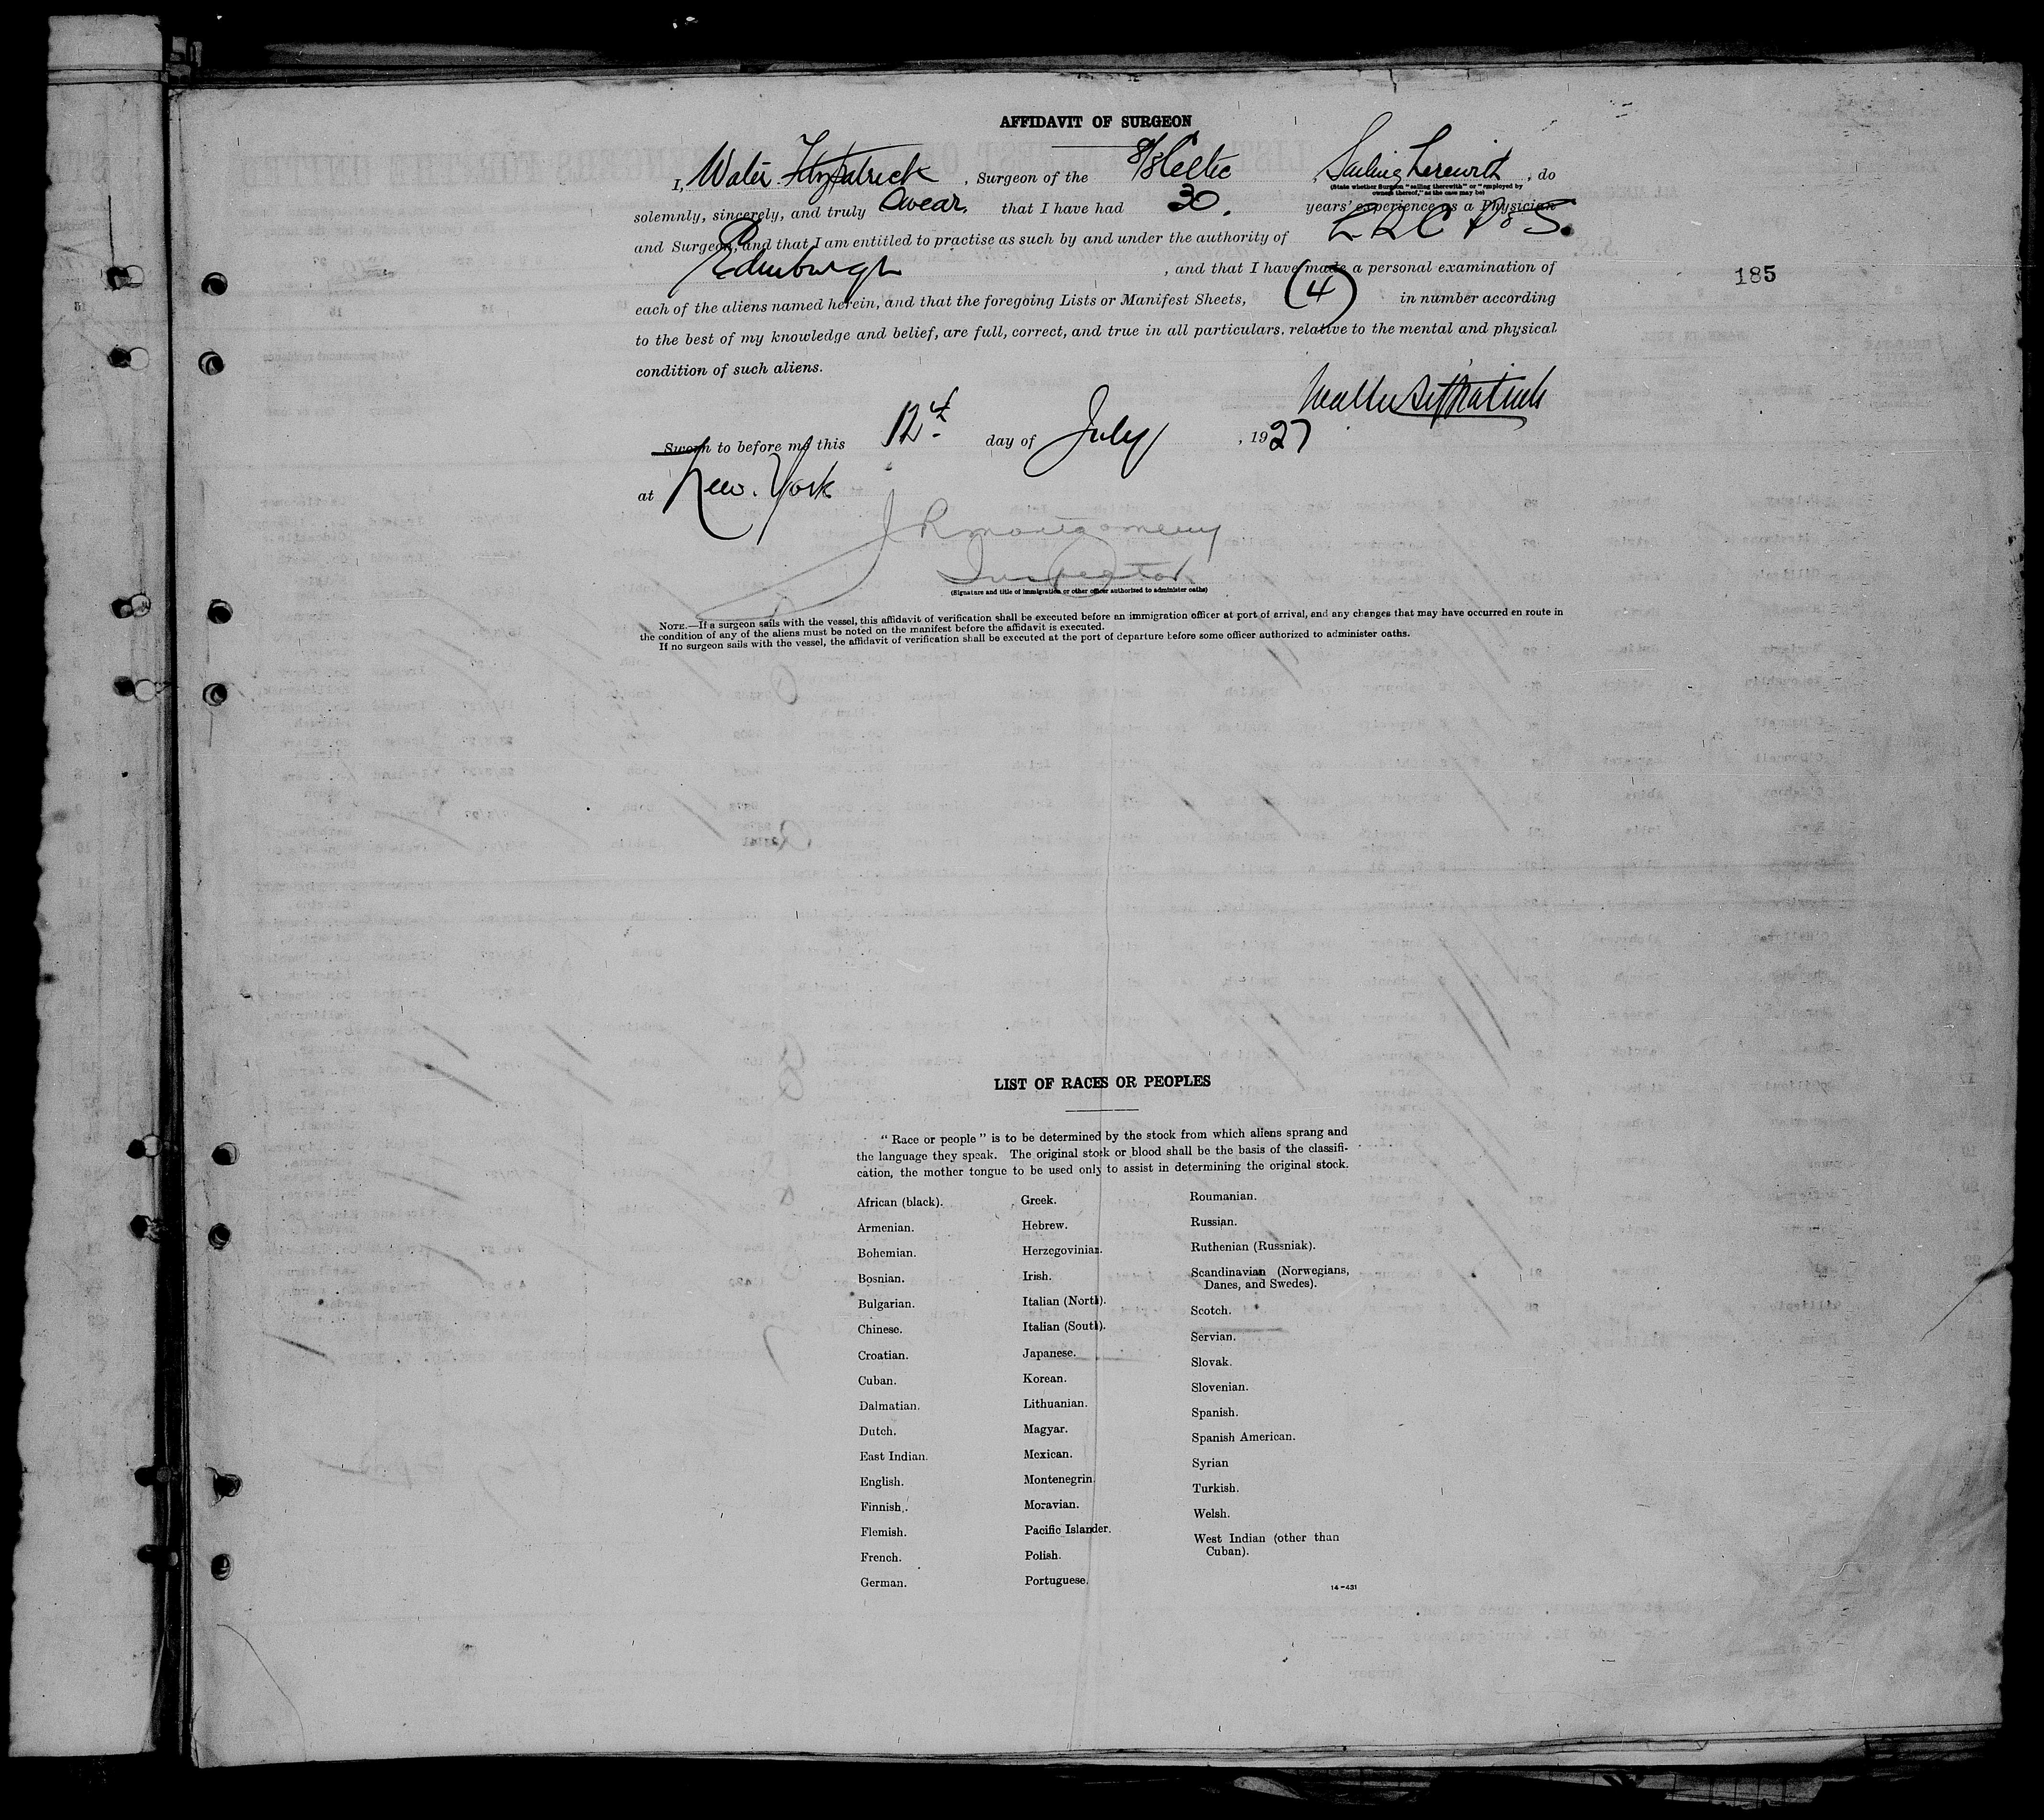 AFFIDAVIT OF SURGEON
I, Walter Fitzpatrick, Surgeon of the S/S Celtic, Sailing therewith, do
(State whether Surgeon "sailing therewith" or "employed by owners thereof," as the case may be)
solemnly, sincerely, and truly swear, that I have had 30. years' experience as a Physician
and Surgeon, and that I am entitled to practise as such by and under the authority of L R C P & S.
Edinburgh, and that I have made a personal examination of
185
each of the aliens named herein, and that the foregoing Lists or Manifest Sheets, (4) in number according
to the best of my knowledge and belief, are full, correct, and true in all particulars, relative to the mental and physical
condition of such aliens.
Walter Fitzpatrick
Sworn to before me this 12th day of July, 1927
at New York
J R Montgomery
Inspector
(Signature and title of immigration or other officer authorized to administer oaths)
NOTE.—If a surgeon sails with the vessel, this affidavit of verification shall be executed before an immigration officer at port of arrival, and any changes that may have occurred en route in
the condition of any of the aliens must be noted on the manifest before the affidavit is executed.
If no surgeon sails with the vessel, the affidavit of verification shall be executed at the port of departure before some officer authorized to administer oaths.
LIST OF RACES OR PEOPLES
"Race or people" is to be determined by the stock from which aliens sprang and
the language they speak. The original stock or blood shall be the basis of the classifi-
cation, the mother tongue to be used only to assist in determining the original stock.
African (black).
Armenian.
Bohemian.
Bosnian.
Bulgarian.
Chinese.
Croatian.
Cuban.
Dalmatian.
Dutch.
East Indian.
English.
Finnish.
Flemish.
French.
German.
Greek.
Hebrew.
Herzegovinian.
Irish.
Italian (North).
Italian (South).
Japanese.
Korean.
Lithuanian.
Magyar.
Mexican.
Montenegrin.
Moravian.
Pacific Islander.
Polish.
Portuguese.
Roumanian.
Russian.
Ruthenian (Russniak).
Scandinavian (Norwegians,
Danes, and Swedes).
Scotch.
Servian.
Slovak.
Slovenian.
Spanish.
Spanish American.
Syrian
Turkish.
Welsh.
West Indian (other than
Cuban).
14-431